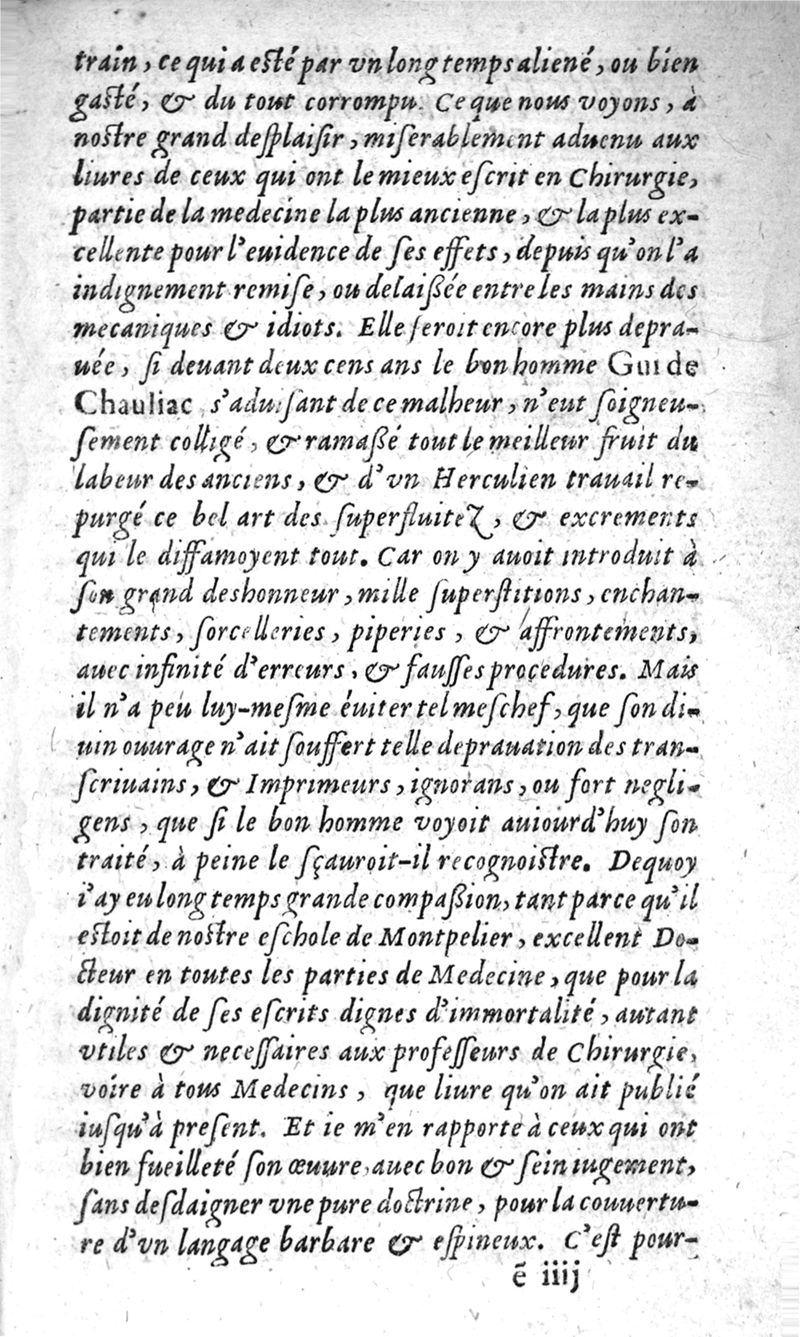 train, ce qui a eſté par vn long temps aliené, ou bien
gaſté, & du tout corrompu. Ce que nous voyons, à
noſtre grand deſplaiſir, miſerablement aduenu aux
liures de ceux qui ont le mieux eſcrit en Chirurgie,
partie de la medecine la plus ancienne, & la plus ex-
cellente pour l'euidence de ſes effets, depuis qu'on l'a
indignement remiſe, ou delaißée entre les mains des
mecaniques & idiots. Elle ſeroit encore plus depra-
uée, ſi deuant deux cens ans le bon homme Gui de
Chauliac s'aduiſant de ce malheur, n'eut ſoigneu-
ſement colligé, & ramaßé tout le meilleur fruit du
labeur des anciens, & d'vn Herculien trauail re-
purgé ce bel art des ſuperfluitez, & excrements
qui le diffamoyent tout. Car on y auoit introduit à
ſon grand deshonneur, mille ſuperſtitions, enchan-
tements, ſorcelleries, piperies, & affrontements,
auec infinité d'erreurs, & fauſſes procedures. Mais
il n'a peu luy-meſme éuiter tel meſchef, que ſon di-
uin ouurage n'ait ſouffert telle deprauation des tran-
ſcriuains, & Imprimeurs, ignorans, ou fort negli-
gens, que ſi le bon homme voyoit auiourd'huy ſon
traité, à peine le ſçauroit-il recognoiſtre. Dequoy
i'ay eu long temps grande compaßion, tant parce qu'il
eſtoit de noſtre eſchole de Montpelier, excellent Do-
cteur en toutes les parties de Medecine, que pour la
dignité de ſes eſcrits dignes d'immortalité, autant
vtiles & neceſſaires aux profeſſeurs de Chirurgie,
voire à tous Medecins, que liure qu'on ait publié
iuſqu'à preſent. Et ie m'en rapporte à ceux qui ont
bien fueilleté ſon œuure, auec bon & ſein iugement,
ſans deſdaigner vne pure doctrine, pour la couuertu-
re d'vn langage barbare & eſpineux. C'eſt pour-
ẽ iiij